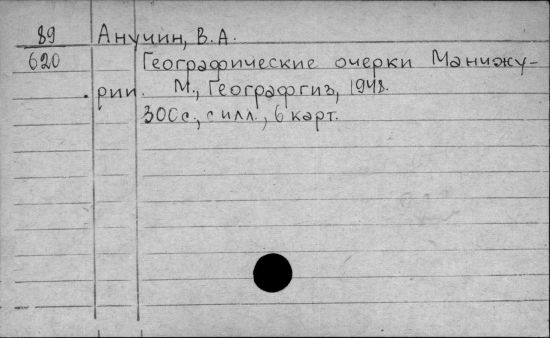 89 Анучин, В.А.
620 Географические очерки Манчжу-
рии. М., Географгиз, 1948.
300с., с илл., 6 карт.